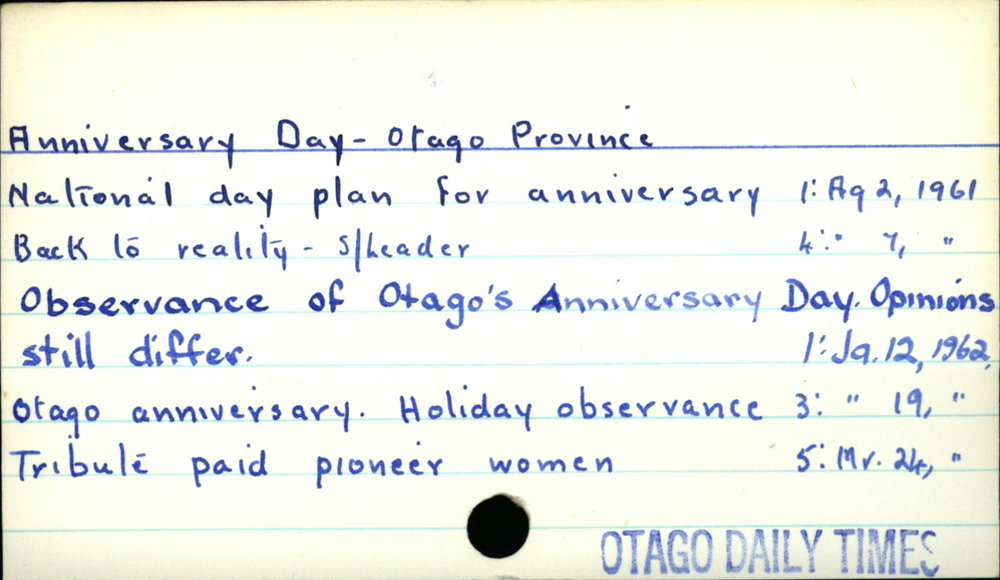 Anniversary Day - Otago Province
National day plan for anniversary 1: Ag 2, 1961
Back to reality - S/header 4: " 7, "
Observance of Otago's Anniversary Day. Opinions
still differ. 1: Ja. 12, 1962,
Otago anniversary. Holiday observance 3: " 19, "
Tribute paid pioneer women 5: Mr. 24, "
OTAGO DAILY TIMES